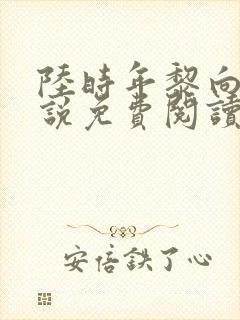 陸時年黎向
說免費閱讀
安倍鉄了心